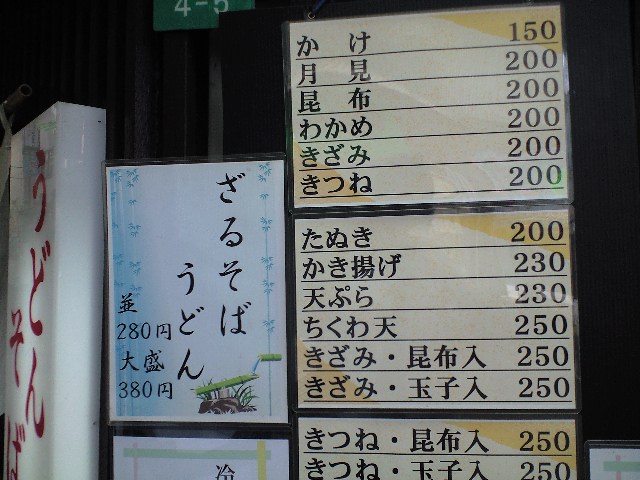 4-5
うどん
そば
ざるそば
うどん
並
280円
大盛
380円
冷
かけ 150
月見 200
昆布 200
わかめ 200
きざみ 200
きつね 200
たぬき 200
かき揚げ 230
天ぷら 230
ちくわ天 250
きざみ・昆布入 250
きざみ・玉子入 250
きつね・昆布入 250
きつね・玉子入 250